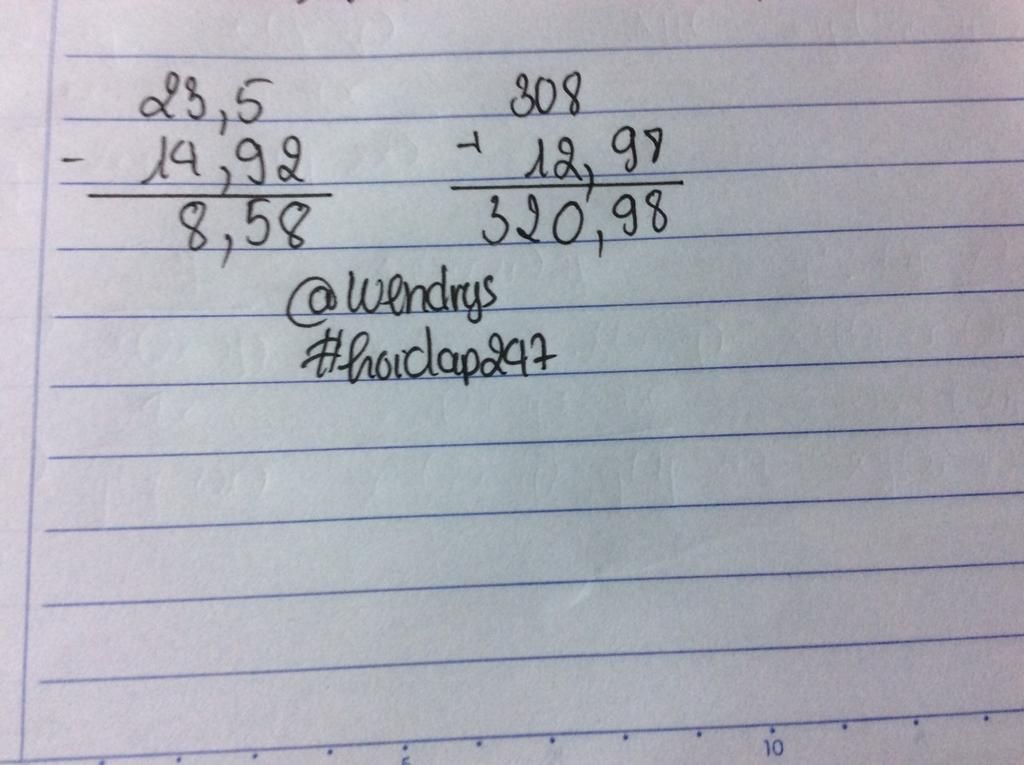 23,5
- 14,92
8,58
308
+ 12,98
320,98
@wendrys
#hoidap247
10